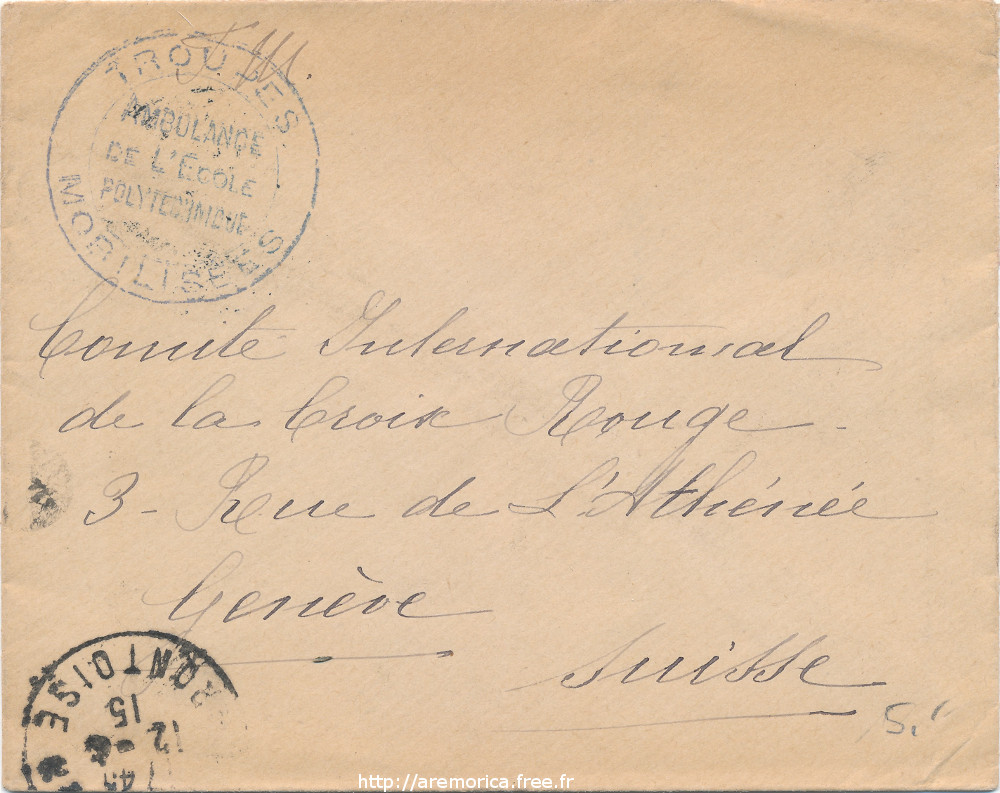 F.M.
TROUPES
AMBULANCE
DE L'ÉCOLE
POLYTECHNIQUE
MOBILISÉES
Comité International
de la Croix Rouge -
3 - Rue de L'Athénée
Genève
Suisse
PONTOISE
15
12
45
5.
http://aremorica.free.fr